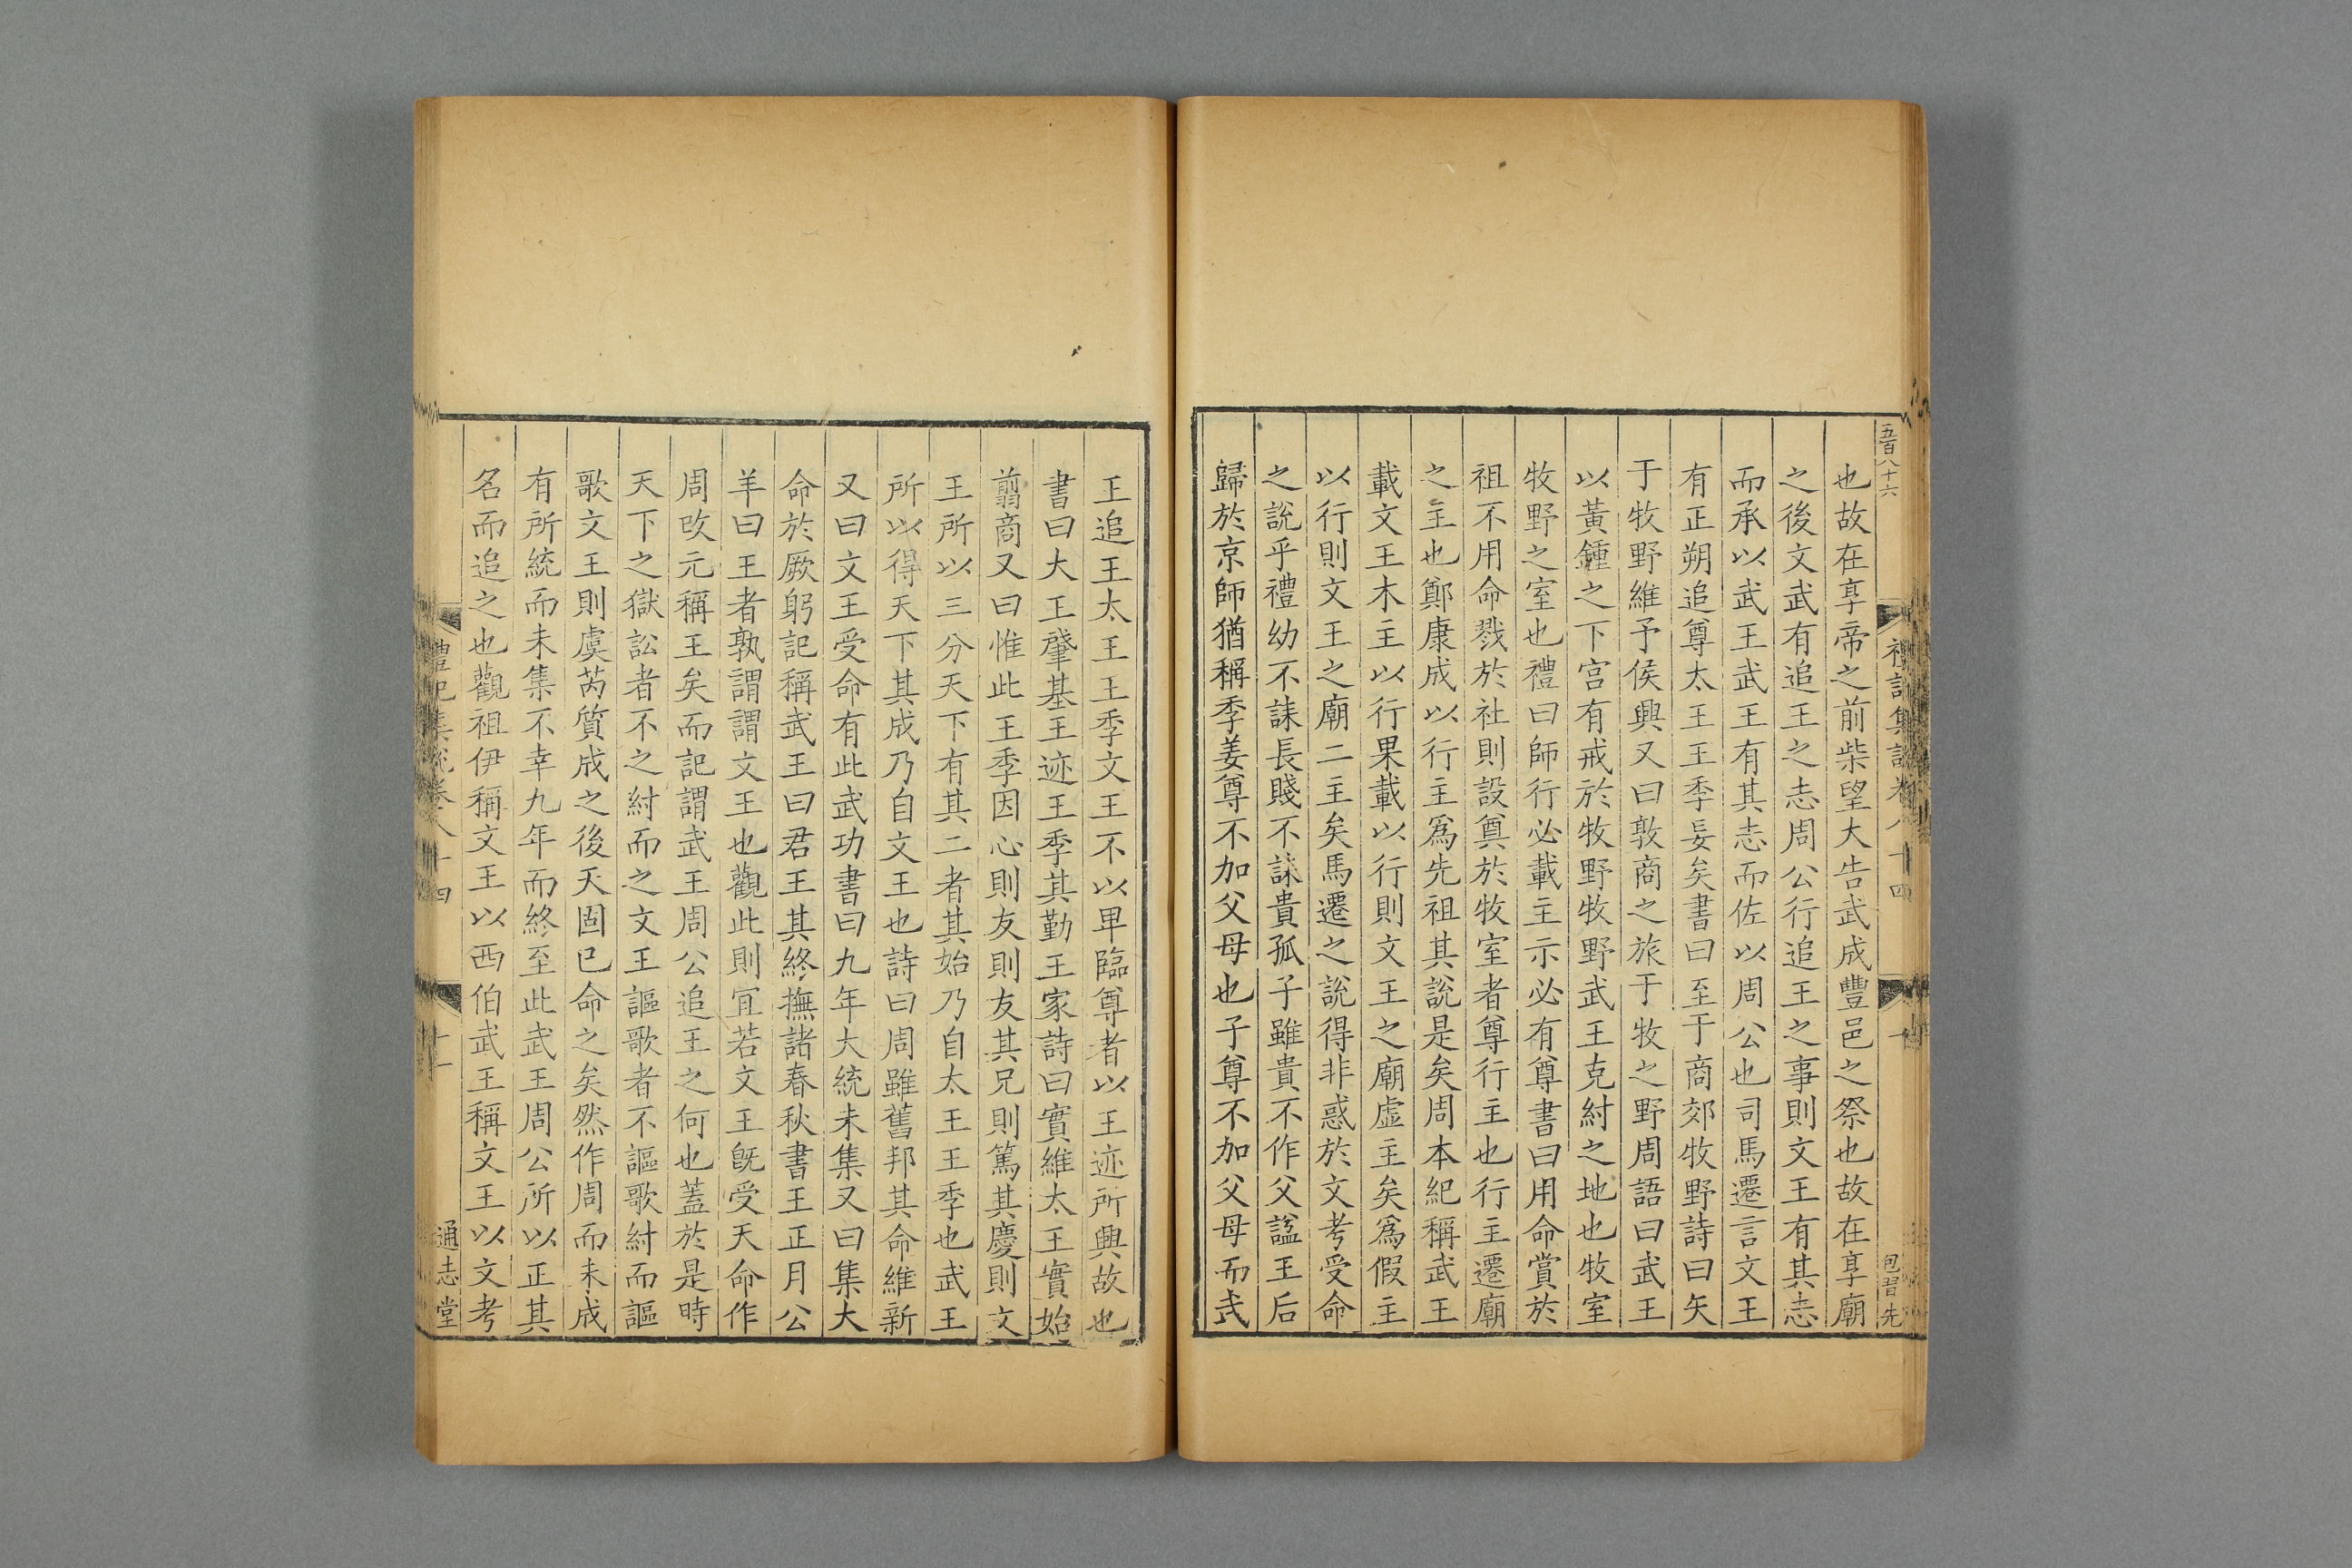 五百八十六
禮記集說卷八十四
十
包晉先
也故在享帝之前柴望大告武成豐邑之祭也故在享廟
之後文武有追王之志周公行追王之事則文王有其志
而承以武王武王有其志而佐以周公也司馬遷言文王
有正朔追尊太王王季妄矣書曰至于商郊牧野詩曰矢
于牧野維予侯興又曰敦商之旅于牧之野周語曰武王
以黃鍾之下宮有戒於牧野牧野武王克紂之地也牧室
牧野之室也禮曰師行必載主示必有尊書曰用命賞於
祖不用命戮於社則設奠於牧室者尊行主也行主遷廟
之主也鄭康成以行主爲先祖其說是矣周本紀稱武王
載文王木主以行果載以行則文王之廟虛主矣爲假主
以行則文王之廟二主矣馬遷之說得非惑於文考受命
之說乎禮幼不誄長賤不誄貴孤子雖貴不作父諡王后
歸於京師猶稱季姜尊不加父母也子尊不加父母而武
王追王太王王季文王不以卑臨尊者以王迹所興故也
書曰大王肇基王迹王季其勤王家詩曰實維太王實始
翦商又曰惟此王季因心則友則友其兄則篤其慶則文
王所以三分天下有其二者其始乃自太王王季也武王
所以得天下其成乃自文王也詩曰周雖舊邦其命維新
又曰文王受命有此武功書曰九年大統未集又曰集大
命於厥躬記稱武王曰君王其終撫諸春秋書王正月公
羊曰王者孰謂謂文王也觀此則宜若文王旣受天命作
周改元稱王矣而記謂武王周公追王之何也蓋於是時
天下之獄訟者不之紂而之文王謳歌者不謳歌紂而謳
歌文王則虞芮質成之後天固已命之矣然作周而未成
有所統而未集不幸九年而終至此武王周公所以正其
名而追之也觀祖伊稱文王以西伯武王稱文王以文考
禮記集說卷八十四
十一
通志堂